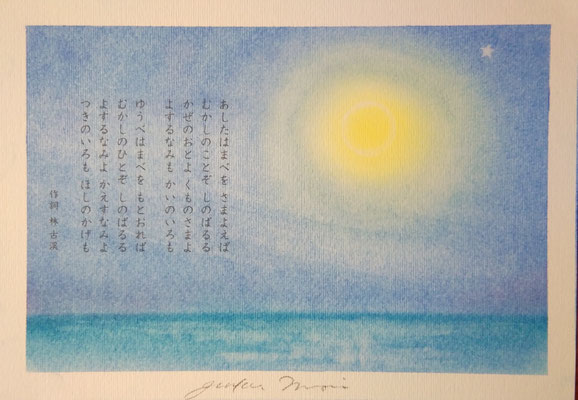 あしたはまべを さまよえば
むかしのことぞ しのばるる
かぜのおとよ くものさまよ
よするなみも かいのいろも
ゆうべはまべを もとおれば
むかしのひとぞ しのばるる
よするなみよ かえすなみよ
つきのいろも ほしのかげも
作詞 林古溪